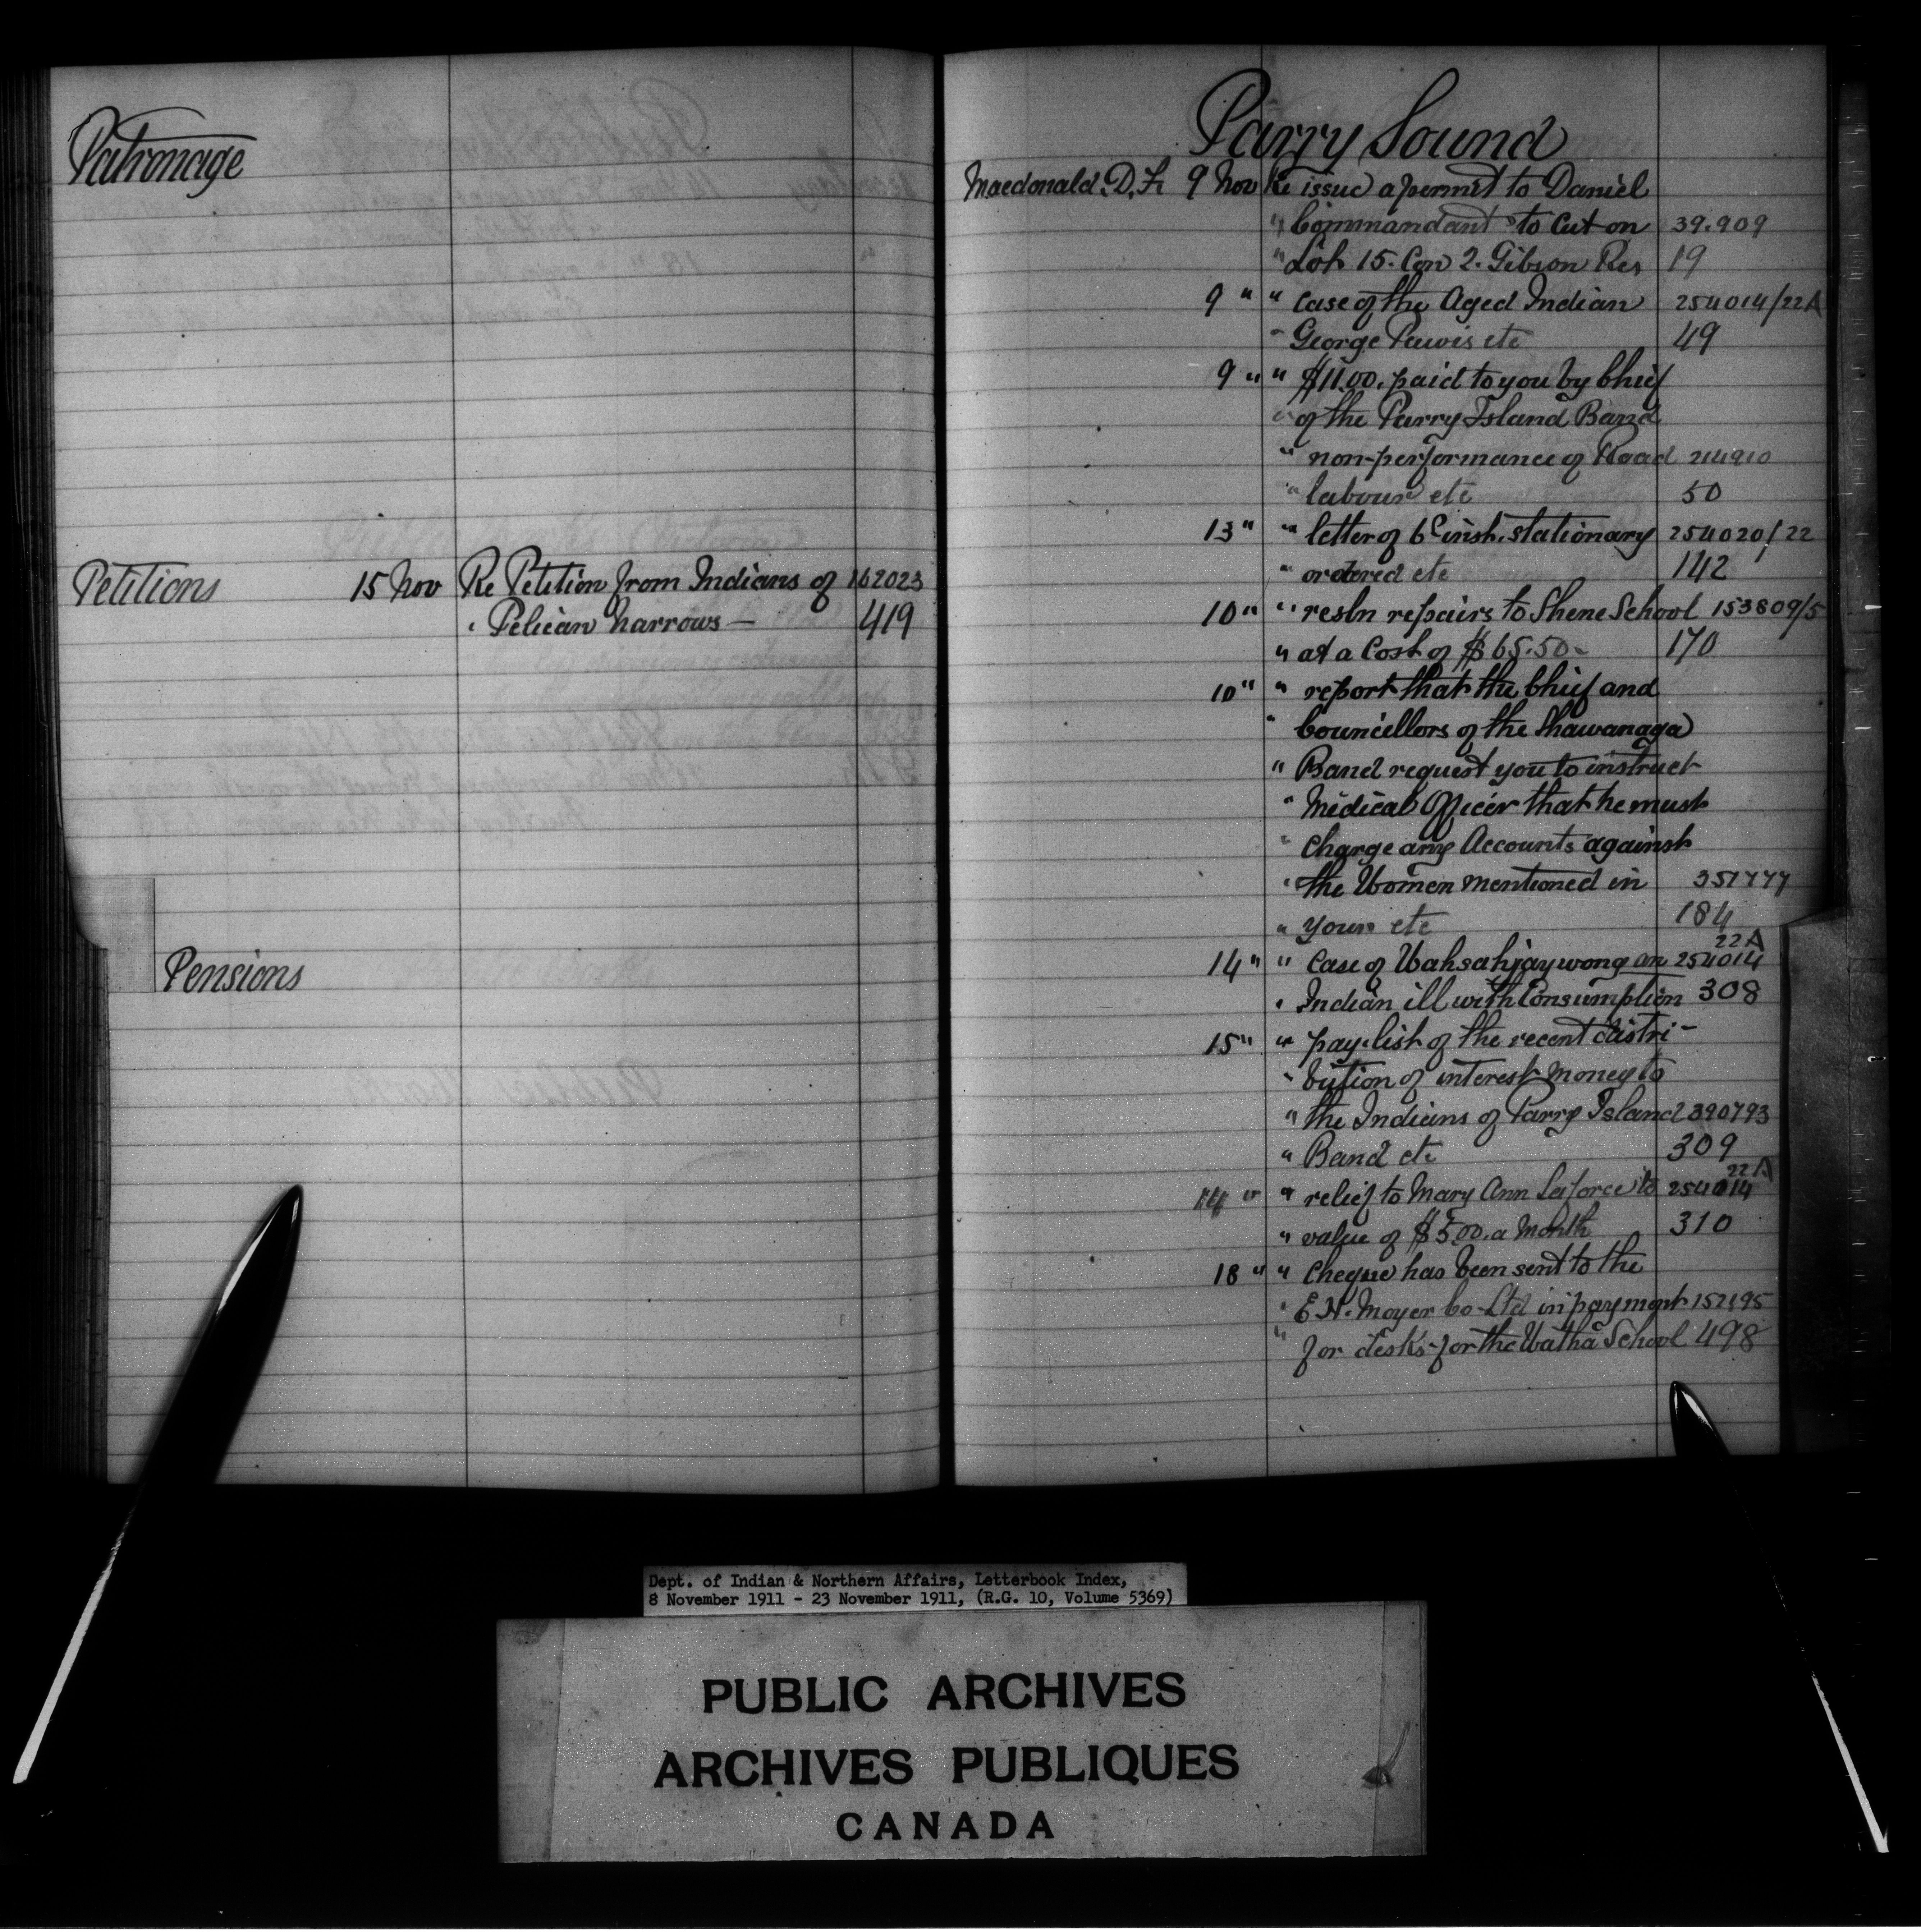 Patronage
Petitions 15 Nov Re Petition from Indians of 162023
" Pelican Narrows — 419
Pensions
Parry Sound
Macdonald. D. F. 9 Nov Re issue a permit to Daniel
" Commandant to Cut on 39.909
" Lot 15. Con 2. Gibson Res 19
9 " " case of the Aged Indian 254014/22A
" George Pawis etc 49
9 " " $11.00. paid to you by Chief
" of the Parry Island Band
" non-performance of Road 214910
" labour etc 50
13 " " letter of 6th inst. stationary 254020/22
" ordered etc 142
10 " " resln repairs to Shene School 153809/5
" at a Cost of $65.50 - 170
10 " " report that the Chief and
" Councillors of the Shawanaga
" Band request you to instruct
" Medical Officer that he must
" Charge any Accounts against
" the Women mentioned in 351777
" yours etc 184
22A
14 " " Case of Wahsahjaywong an 254014
" Indian ill with Consumption 308
15 " " pay-list of the recent distri-
" bution of interest money to
" the Indians of Parry Island 390793
" Band etc 309
22A
14 " " relief to Mary Ann Laforce to 254014
" value of $5.00. a Month 310
18 " " Cheque has been sent to the
" E. N. Moyer Co-Ltd in payment 152195
" for desks-for the Watha School 498
Dept. of Indian & Northern Affairs, Letterbook Index,
8 November 1911 - 23 November 1911, (R.G. 10, Volume 5369)
PUBLIC ARCHIVES
ARCHIVES PUBLIQUES
CANADA